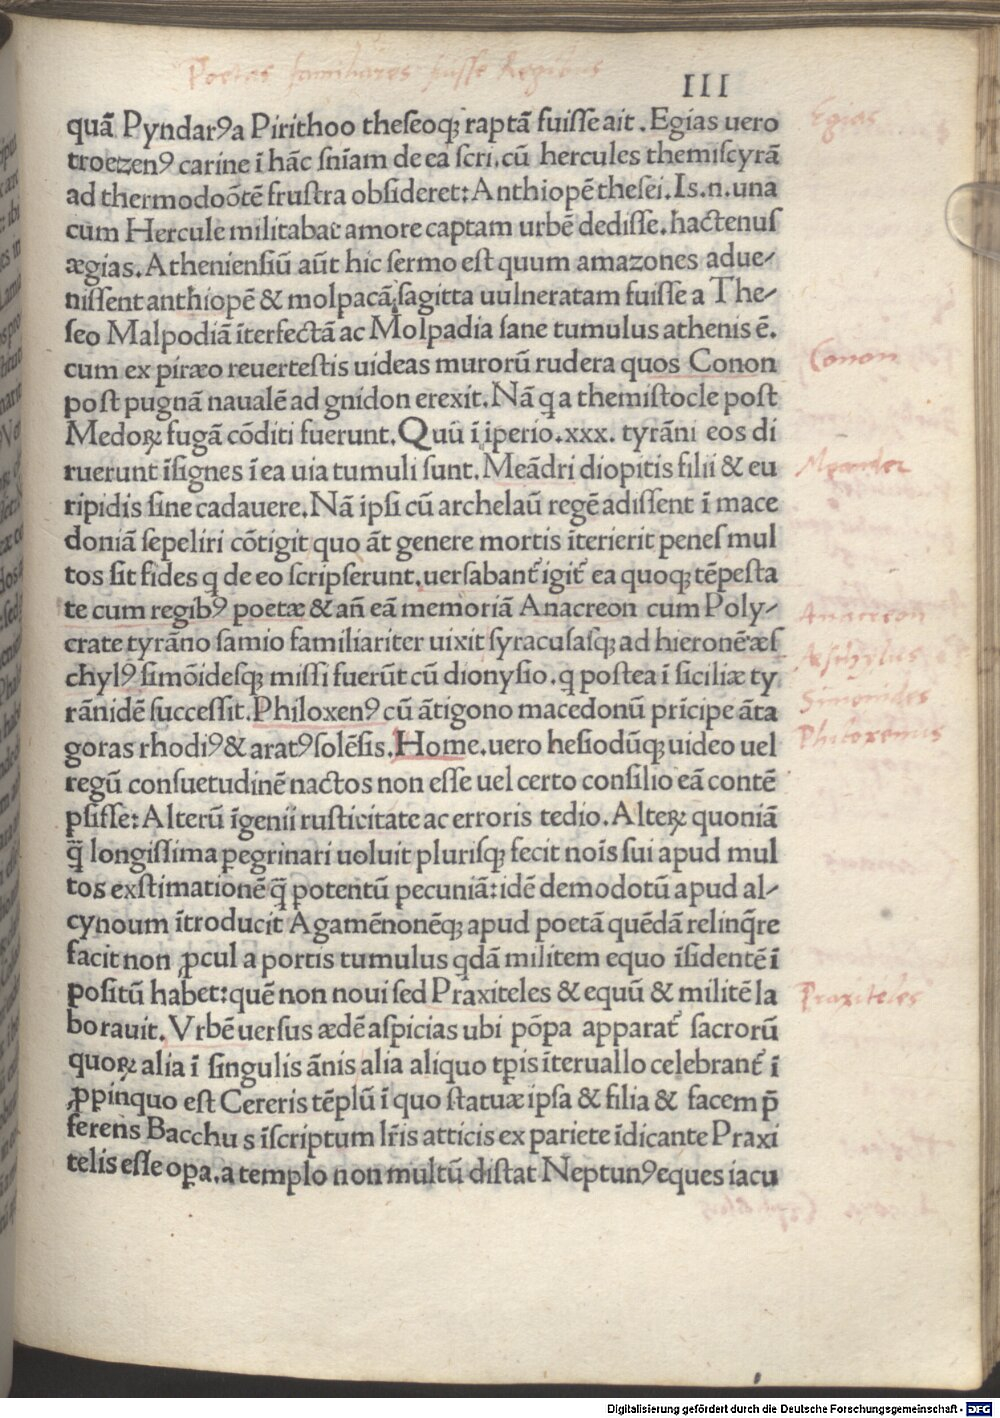 Poetas familiares fuisse Regibus
III
quã Pyndarꝰ a Pirithoo theſeoqꝫ raptã fuiſſe ait. Egias uero
troezenꝰ carine ĩ hãc ſnĩam de ea ſcri. cũ hercules themiſcyrã
ad thermodoõtẽ fruſtra obſideret: Anthiopẽ theſei. Is.n.una
cum Hercule militabat amore captam urbẽ dediſſe. hactenuſ
ægias. Athenienſiũ aũt hic ſermo eſt quum amazones adue⸗
niſſent anthiopẽ & molpacã, ſagitta uulneratam fuiſſe a The⸗
ſeo Malpodiã ĩterfectã ac Molpadia ſane tumulus athenis ẽ.
cum ex piræo reuerteſtis uideas murorũ rudera quos Conon
poſt pugnã naualẽ ad gnidon erexit. Nã q a themiſtocle poſt
Medoꝝ fugã cõditi fuerunt. Quũ ĩ iperio .xxx. tyrãni eos di
ruerunt ĩſignes ĩ ea uia tumuli ſunt. Meãdri diopitis filii & eu
ripidis ſine cadauere. Nã ipſi cũ archelaũ regẽ adiſſent ĩ mace
doniã ſepeliri cõtigit quo ãt genere mortis ĩterierit peneſ mul
tos ſit fides q de eo ſcripſerunt. uerſabant᷑ igit᷑ ea quoqꝫ tẽpeſta
te cum regibꝰ poetæ & añ eã memoriã Anacreon cum Poly⸗
crate tyrãno ſamio familiariter uixit ſyracuſaſqꝫ ad hieronẽ æſ
chylꝰ ſimõideſqꝫ miſſi fuerũt cũ dionyſio. q poſtea ĩ ſiciliæ ty
rãnidẽ ſucceſſit. Philoxenꝰ cũ ãtigono macedonũ prĩcipe ãta
goras rhodiꝰ & aratꝰ ſolẽſis. Home. uero heſiodũqꝫ uideo uel
regũ conſuetudinẽ nactos non eſſe uel certo conſilio eã contẽ
pſiſſe: Alterũ ĩgenii ruſticitate ac erroris tedio. Alteꝝ quoniã
q̃ longiſſima ꝑegrinari uoluit pluriſqꝫ fecit noĩs ſui apud mul
tos exſtimationẽ q̃ potentũ pecuniã: idẽ demodotũ apud al⸗
cynoum ĩtroducit Agamẽnonẽqꝫ apud poetã quẽdã relinq̃re
facit non ꝓcul a portis tumulus qdã militem equo ĩſidentẽ ĩ
poſitũ habet: quẽ non noui ſed Praxiteles & equũ & militẽ la
borauit. Vrbẽ uerſus ædẽ aſpicias ubi põpa apparat᷑ ſacrorũ
quoꝝ alia ĩ ſingulis ãnis alia aliquo tꝑis ĩteruallo celebrant᷑ ĩ
ꝓpinquo eſt Cereris tẽplũ ĩ quo ſtatuæ ipſa & filia & facem p̃
ferens Bacchus ĩſcriptum lr̃is atticis ex pariete ĩdicante Praxi
telis eſſe opa. a templo non multũ diſtat Neptunꝰ eques iacu
Egias
Conon
Meander
Anacreon
Æschylus
Simonides
Philoxenus
Praxiteles
Digitalisierung gefördert durch die Deutsche Forschungsgemeinschaft - DFG